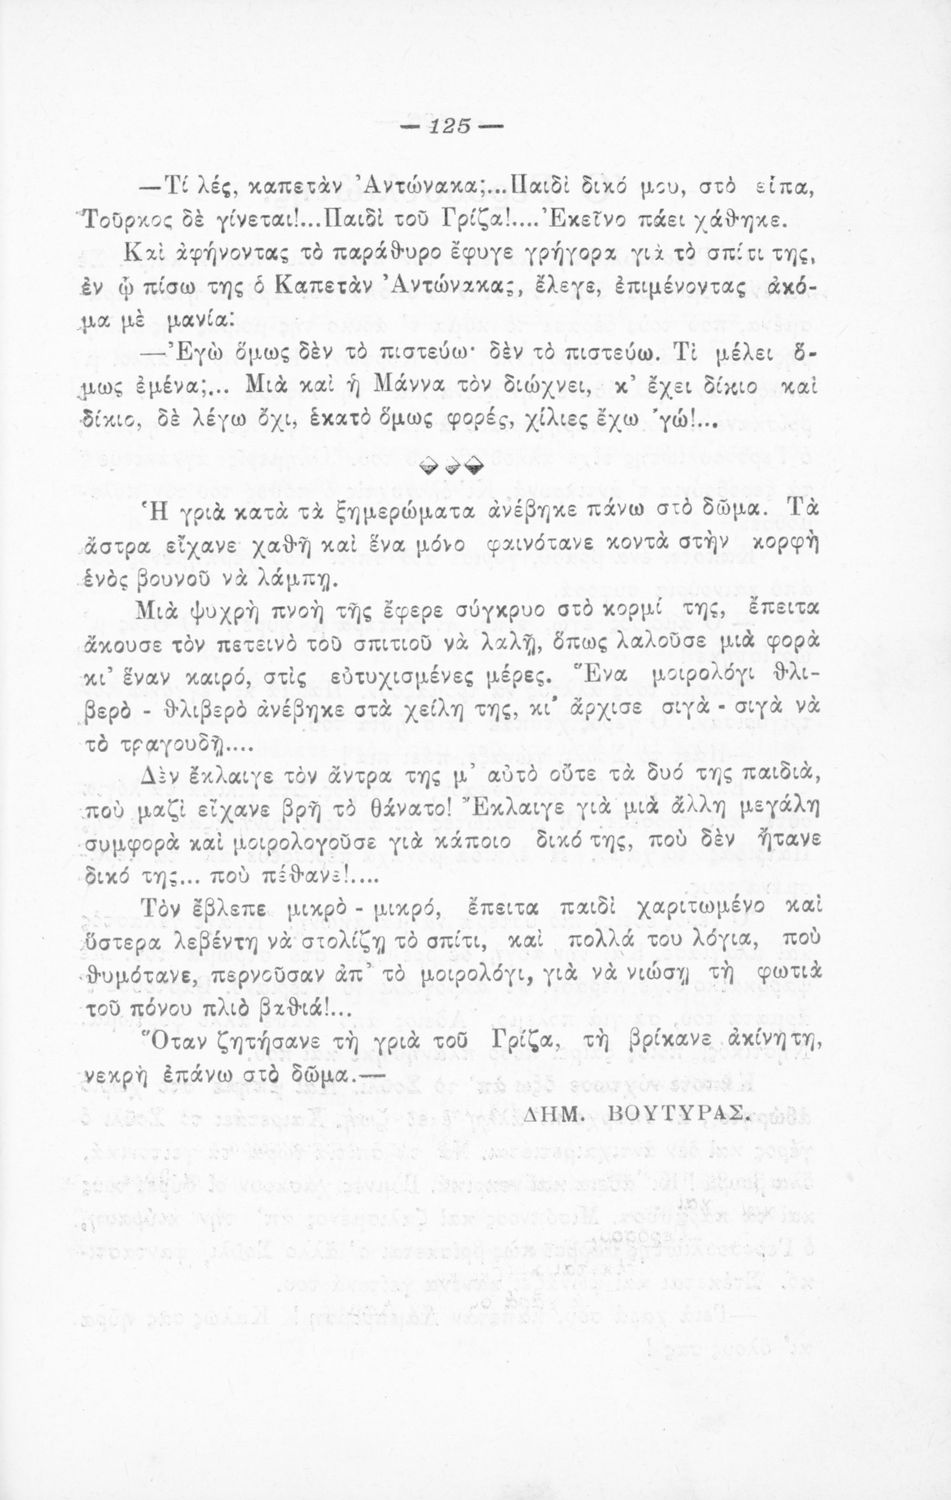 — 125 —
—Τί λές, καπετὰν Ἀντώνακα;...Παιδὶ δικό μου, στὸ εἶπα,
Τοῦρκος δὲ γίνεται!...Παιδὶ τοῦ Γρίζα!....Ἐκεῖνο πάει χάθηκε.
Καὶ ἀφήνοντας τὸ παράθυρο ἔφυγε γρήγορα γιὰ τὸ σπίτι της,
ἐν ᾧ πίσω της ὁ Καπετὰν Ἀντώνακας, ἔλεγε, ἐπιμένοντας ἀκό-
μα μὲ μανία:
—Ἐγὼ ὅμως δὲν τὸ πιστεύω· δὲν τὸ πιστεύω. Τὶ μέλει ὅ-
μως ἐμένα;... Μιὰ καὶ ἡ Μάννα τὸν διώχνει, κ’ ἔχει δίκιο καὶ
δίκιο, δὲ λέγω ὄχι, ἑκατὸ ὅμως φορές, χίλιες ἔχω ’γώ!...
Ἡ γριὰ κατὰ τὰ ξημερώματα ἀνέβηκε πάνω στὸ δῶμα. Τὰ
ἄστρα εἴχανε χαθῆ καὶ ἕνα μόνο φαινότανε κοντὰ στὴν κορφὴ
ἑνὸς βουνοῦ νὰ λάμπῃ.
Μιὰ ψυχρὴ πνοὴ τῆς ἔφερε σύγκρυο στὸ κορμί της, ἔπειτα
ἄκουσε τὸν πετεινὸ τοῦ σπιτιοῦ νὰ λαλῇ, ὅπως λαλοῦσε μιὰ φορὰ
κι’ ἕναν καιρό, στὶς εὐτυχισμένες μέρες. Ἕνα μοιρολόγι θλι-
βερὸ - θλιβερὸ ἀνέβηκε στὰ χείλη της, κι’ ἄρχισε σιγὰ - σιγὰ νὰ
τὸ τραγουδῇ....
Δὲν ἔκλαιγε τὸν ἄντρα της μ’ αὐτὸ οὔτε τὰ δυό της παιδιά,
ποὺ μαζὶ εἴχανε βρῆ τὸ θάνατο! Ἔκλαιγε γιὰ μιὰ ἄλλη μεγάλη
συμφορὰ καὶ μοιρολογοῦσε γιὰ κάποιο δικό της, ποὺ δὲν ἤτανε
δικό της... ποὺ πέθανε!....
Τὸν ἔβλεπε μικρὸ - μικρό, ἔπειτα παιδὶ χαριτωμένο καὶ
ὕστερα λεβέντη νὰ στολίζῃ τὸ σπίτι, καὶ πολλά του λόγια, ποὺ
θυμότανε, περνοῦσαν ἀπ’ τὸ μοιρολόγι, γιὰ νὰ νιώσῃ τὴ φωτιὰ
τοῦ πόνου πλιὸ βαθιά!...
Ὅταν ζητήσανε τὴ γριὰ τοῦ Γρίζα, τὴ βρίκανε ἀκίνητη,
νεκρὴ ἐπάνω στὸ δῶμα.—
ΔΗΜ. ΒΟΥΤΥΡΑΣ.